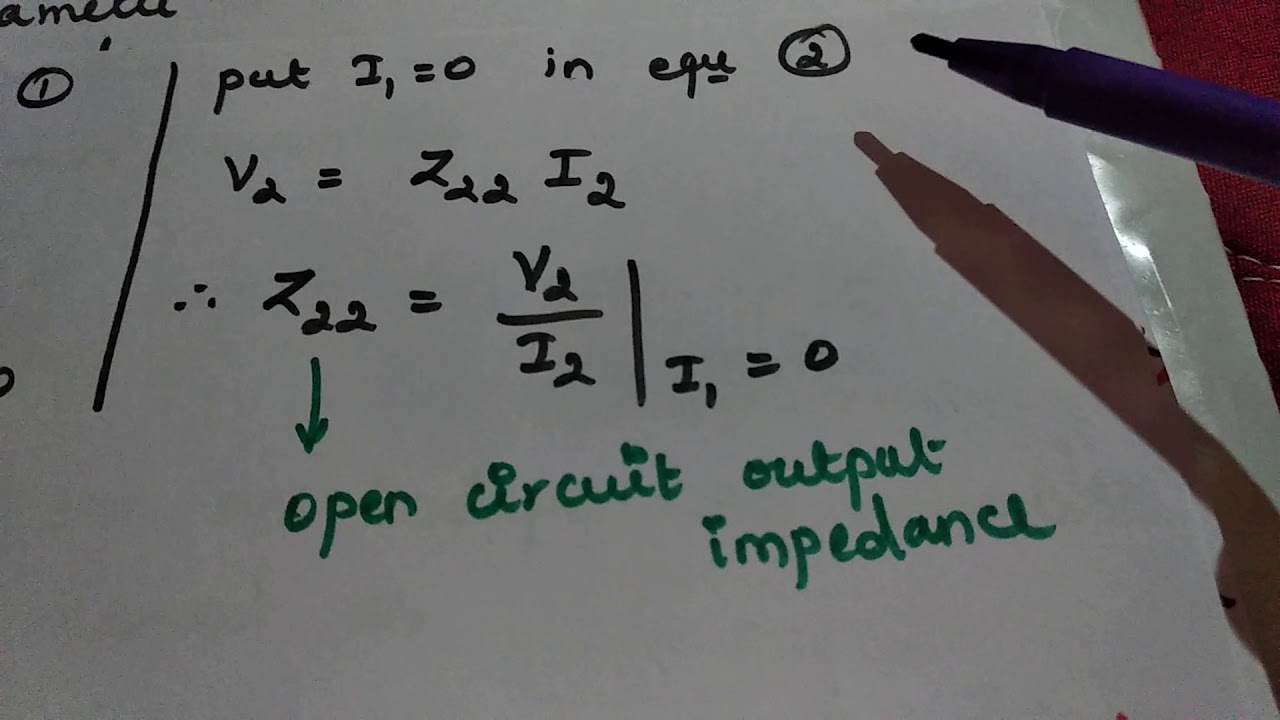 ①
put I₁ = 0 in equ ②
V₂ = Z₂₂ I₂
∴ Z₂₂ = V₂ / I₂ | I₁ = 0
↓
open circuit output
impedance